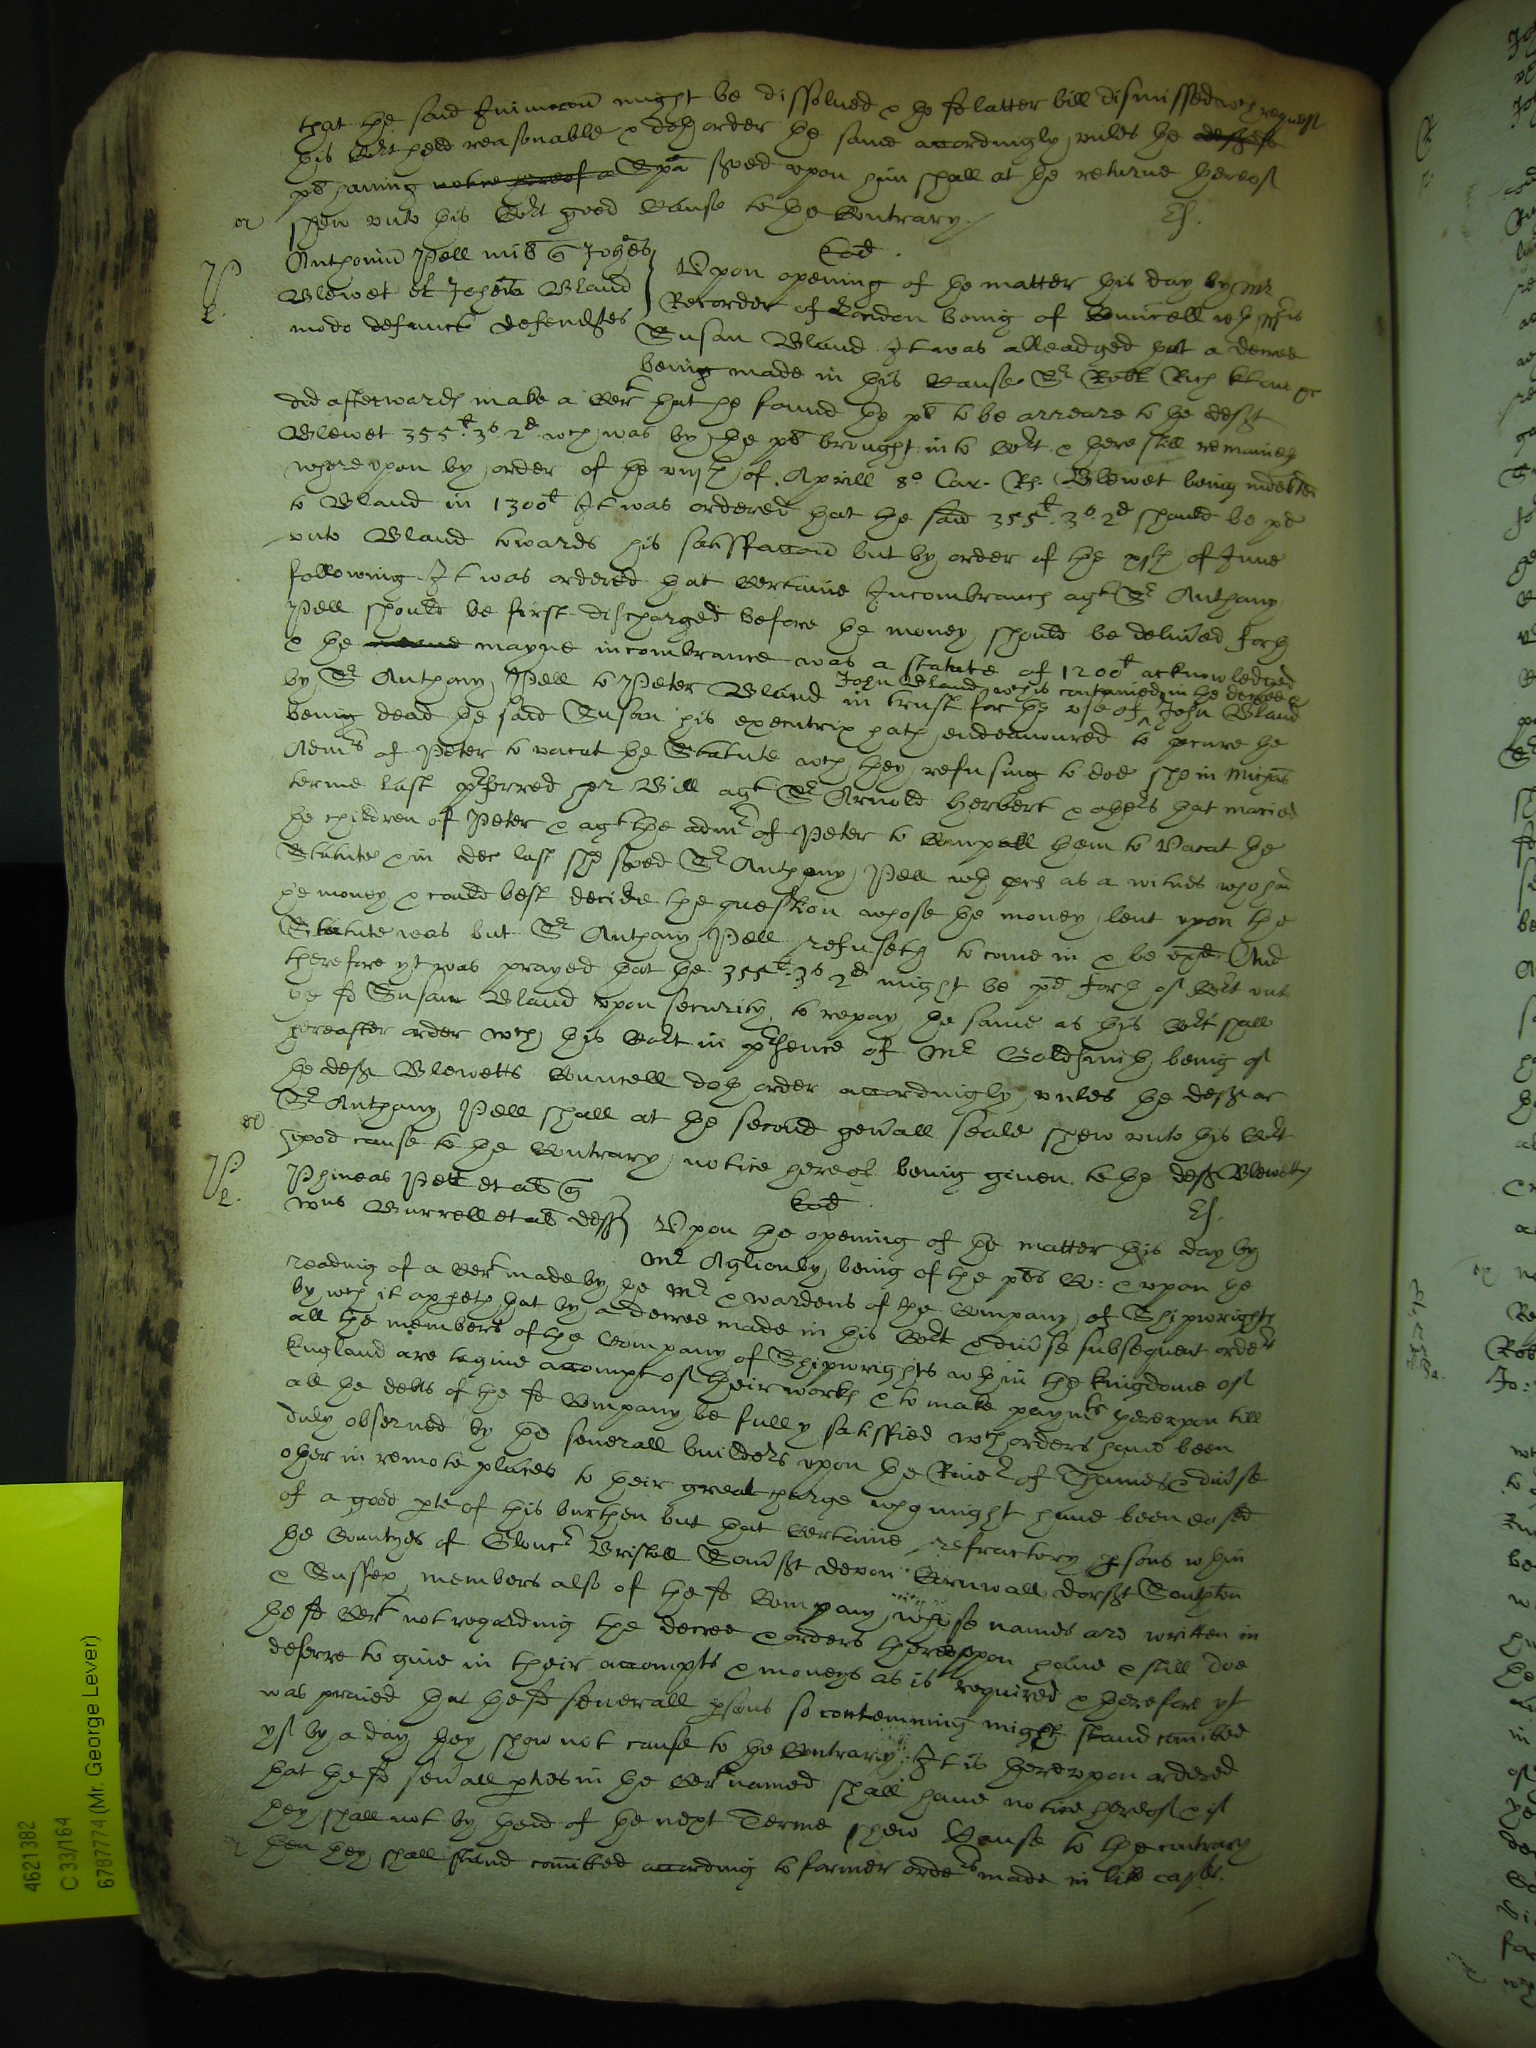 that the said Iniunccon might be dissolued & the sd latter bill dismissed wch request
this Cort held reasonable & doth order the same accordingly vnles the
plt hauing Spa serued vpon him shall at the returne thereof
shew vnto this Cort good Cause to the Contrary.
Anthoniu Pell mil Johes
Blewet et Johem Bland
modo defunct defendtes
Eod.
Vpon opening of the matter this day by Mr
Recorder of London being of Councell wth Mris
Susan Bland It was alleadged that a decree
being made in this Cause Sr Robt Rich knt
did afterwards make a Cert that he found the plt to be arreare to the deft
Blewet 355l. 3s. 2d wch was by the plt brought into Cort & there still remaineth
wherevpon by order of the of Aprill 8o Car. Rs. Blewet being indebted
to Bland in 1300l It was ordered that the said 355l. 3s. 2d should be pd
vnto Bland towards his satisfaccon but by order of the of June
following It was ordered that Certaine Incombrances agt Sr Anthony
Pell should be first discharged before the money should be deliued forth
& the mayne incombrance was a statute of 1200l acknowledged
by Sr Anthony Pell to Peter Bland in trust for the vse of John Bland
John Bland wch is contained in the decree &
being dead the said Susan his executrix hath endeauoured to pcure the
Adms of Peter to vacat the Statute wch they refusing to doe she in Michas
terme last pferred her Bill agt Sr Arnold Herbert & others that maried
the children of Peter & agt the admr of Peter to Compell them to Vacat the
Statute & in Dec last she serued Sr Anthony Pell wth as a witnes who had
the money & could best decide the question whose the money lent vpon the
Statute was but Sr Anthony Pell refuseth to come in & be exd And
therefore yt was prayed that the 355l. 3s 2d might be pd forth of Cort vnto
the sd Susan Bland vpon security to repay the same as this Cort shall
hereafter order wch this Cort in presence of Mr Goldsmith being of
the deft Blewetts Councell doth order accordingly vnles the deft or
Sr Anthony Pell shall at the second genall seale shew vnto this Cort
good cause to the Contrary notice hereof being giuen to the deft Blewett
Phineas Pett et als
Wm Burrell et als deff
Eod.
Vpon the opening of the matter this day by
Mr Aglionby being of the plts Co: & vpon the
reading of a Cert made by the Mr & wardens of the Company of Shipwrights
by wch it appeth that by a decree made in this Cort & diuse subsequent orders
all the members of the Company of Shipwrights wthin the kingdome of
England are to giue accompt of their works & to make paymts therevpon till
all the debts of the sd Company be fully satisfied wch orders haue been
duly obserued by the seuerall builders vpon the Riuer of Thames & diuse
other in remote places to their great charge who might haue been eased
of a good pte of this burthen but that Certaine refractory psons wthin
the Countyes of Glouc Bristoll Somst Devon Cornwall dorst Southton
& Sussex members also of the sd Company whose names are written in
the sd Cert not regarding the decree & orders therevpon haue & still doe
deferre to giue in their accompts & moneys as is required & therefore yt
was praied that the sd seuerall psons so contemning might stand comitted
yf by a day they shew not cause to the Contrary. It is therevpon ordered
that the sd seuall pties in the Cert named shall haue notice thereof & if
they shall not by thend of the next Terme shew Cause to the contrary
then they shall stand comitted according to former orders made in like case.
4621382
C 33/164
6787774 (Mr. George Lever)